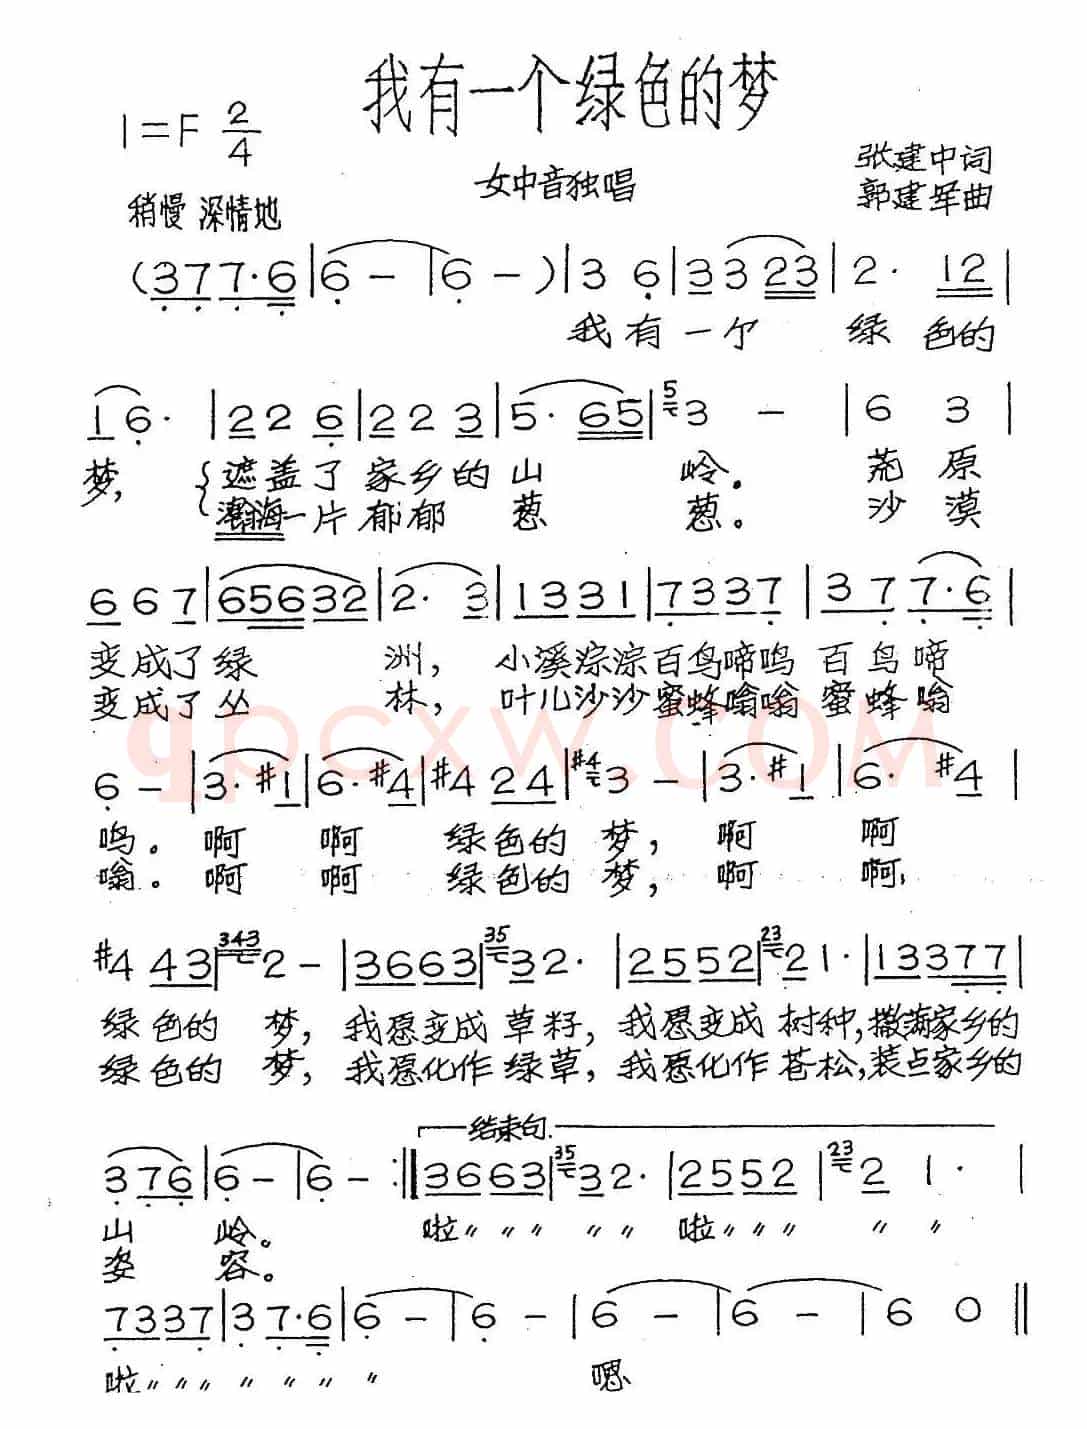 我有一个绿色的梦
1=F 2/4
女中音独唱
张建中词
稍慢 深情地
郭建军曲
(3 7 7·6 | 6 - | 6 - ) | 3 6 | 3 3 23 | 2· 12 |
我有一个 绿色的
1 6· | 2 2 6 | 2 2 3 | 5· 65 | 5 3 - | 6 3 |
梦, { 遮盖了家乡的山 岭。 荒原
瀚海一片郁郁葱 葱。 沙漠
6 6 7 | 65632 | 2· 3 | 1331 | 7337 | 37 7·6 |
变成了绿 洲, 小溪淙淙百鸟啼鸣 百鸟啼
变成了丛 林, 叶儿沙沙蜜蜂嗡嗡 蜜蜂嗡
qpcxw.com
6 - | 3·#1 | 6·#4 | #4 24 | #4 3 - | 3·#1 | 6· #4 |
鸣。啊 啊 绿色的 梦, 啊 啊
嗡。啊 啊 绿色的 梦, 啊 啊,
#4 43 | 343 2 - | 3663 | 35 32· | 2552 | 23 2 1· | 13377 |
绿色的 梦, 我愿变成草籽, 我愿变成树种,撒满家乡的
绿色的 梦, 我愿化作绿草, 我愿化作苍松,装点家乡的
结束句.
3 76 | 6 - | 6 - :‖ 3663 | 35 32· | 2552 | 23 2 1· |
山 岭。 啦〃〃〃 〃〃 啦〃〃〃 〃 〃
姿 容。
7337 | 3 7·6 | 6 - | 6 - | 6 - | 6 - | 6 0 ‖
啦〃〃〃 〃 〃 〃 〃 嗯